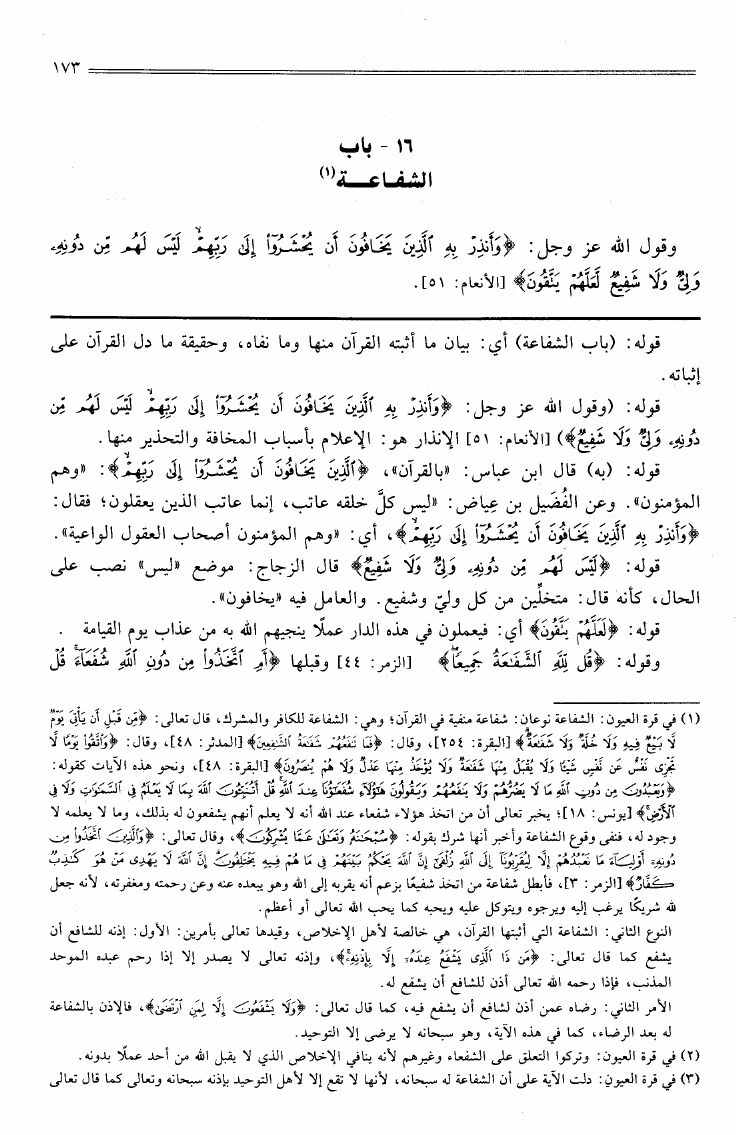 ١٧٣
١٦ - باب
الشفاعـــة(١)
وقول الله عز وجل: ﴿وَأَنذِرْ بِهِ ٱلَّذِينَ يَخَافُونَ أَن يُحْشَرُوٓا۟ إِلَىٰ رَبِّهِمْ ۙ لَيْسَ لَهُم مِّن دُونِهِۦ
وَلِيٌّ وَلَا شَفِيعٌ لَّعَلَّهُمْ يَتَّقُونَ﴾ [الأنعام: ٥١].
قوله: (باب الشفاعة) أي: بيان ما أثبته القرآن منها وما نفاه، وحقيقة ما دل القرآن على
إثباته.
قوله: (وقول الله عز وجل: ﴿وَأَنذِرْ بِهِ ٱلَّذِينَ يَخَافُونَ أَن يُحْشَرُوٓا۟ إِلَىٰ رَبِّهِمْ ۙ لَيْسَ لَهُم مِّن
دُونِهِۦ وَلِيٌّ وَلَا شَفِيعٌ﴾) [الأنعام: ٥١] الإنذار هو: الإعلام بأسباب المخافة والتحذير منها.
قوله: (به) قال ابن عباس: «بالقرآن»، ﴿ٱلَّذِينَ يَخَافُونَ أَن يُحْشَرُوٓا۟ إِلَىٰ رَبِّهِمْ ۙ﴾: «وهم
المؤمنون». وعن الفُضَيل بن عِياض: «ليس كلَّ خلقه عاتب، إنما عاتب الذين يعقلون؛ فقال:
﴿وَأَنذِرْ بِهِ ٱلَّذِينَ يَخَافُونَ أَن يُحْشَرُوٓا۟ إِلَىٰ رَبِّهِمْ ۙ﴾، أي: «وهم المؤمنون أصحاب العقول الواعية».
قوله: ﴿لَيْسَ لَهُم مِّن دُونِهِۦ وَلِيٌّ وَلَا شَفِيعٌ﴾ قال الزجاج: موضع «ليس» نصب على
الحال، كأنه قال: متخلِّين من كل وليّ وشفيع. والعامل فيه «يخافون».
قوله: ﴿لَعَلَّهُمْ يَتَّقُونَ﴾ أي: فيعملون في هذه الدار عملًا ينجيهم الله به من عذاب يوم القيامة .
وقوله: ﴿قُل لِّلَّهِ ٱلشَّفَـٰعَةُ جَمِيعًا ۖ﴾ [الزمر: ٤٤] وقبلها ﴿أَمِ ٱتَّخَذُوا۟ مِن دُونِ ٱللَّهِ شُفَعَآءَ ۚ قُلْ
(١) في قرة العيون: الشفاعة نوعان: شفاعة منفية في القرآن؛ وهي: الشفاعة للكافر والمشرك، قال تعالى: ﴿مِّن قَبْلِ أَن يَأْتِىَ يَوْمٌ
لَّا بَيْعٌ فِيهِ وَلَا خُلَّةٌ وَلَا شَفَـٰعَةٌ ۗ﴾ [البقرة: ٢٥٤]، وقال: ﴿فَمَا تَنفَعُهُمْ شَفَـٰعَةُ ٱلشَّـٰفِعِينَ﴾ [المدثر: ٤٨]، وقال: ﴿وَٱتَّقُوا۟ يَوْمًا لَّا
تَجْزِى نَفْسٌ عَن نَّفْسٍ شَيْـًٔا وَلَا يُقْبَلُ مِنْهَا شَفَـٰعَةٌ وَلَا يُؤْخَذُ مِنْهَا عَدْلٌ وَلَا هُمْ يُنصَرُونَ﴾ [البقرة: ٤٨]، ونحو هذه الآيات كقوله:
﴿وَيَعْبُدُونَ مِن دُونِ ٱللَّهِ مَا لَا يَضُرُّهُمْ وَلَا يَنفَعُهُمْ وَيَقُولُونَ هَـٰٓؤُلَآءِ شُفَعَـٰٓؤُنَا عِندَ ٱللَّهِ ۚ قُلْ أَتُنَبِّـُٔونَ ٱللَّهَ بِمَا لَا يَعْلَمُ فِى ٱلسَّمَـٰوَٰتِ وَلَا فِى
ٱلْأَرْضِ ۚ﴾ [يونس: ١٨]؛ يخبر تعالى أن من اتخذ هؤلاء شفعاء عند الله أنه لا يعلم أنهم يشفعون له بذلك، وما لا يعلمه لا
وجود له، فنفى وقوع الشفاعة وأخبر أنها شرك بقوله: ﴿سُبْحَـٰنَهُۥ وَتَعَـٰلَىٰ عَمَّا يُشْرِكُونَ﴾، وقال تعالى: ﴿وَٱلَّذِينَ ٱتَّخَذُوا۟ مِن
دُونِهِۦٓ أَوْلِيَآءَ مَا نَعْبُدُهُمْ إِلَّا لِيُقَرِّبُونَآ إِلَى ٱللَّهِ زُلْفَىٰٓ إِنَّ ٱللَّهَ يَحْكُمُ بَيْنَهُمْ فِى مَا هُمْ فِيهِ يَخْتَلِفُونَ ۗ إِنَّ ٱللَّهَ لَا يَهْدِى مَنْ هُوَ كَـٰذِبٌ
كَفَّارٌ﴾ [الزمر: ٣]، فأبطل شفاعة من اتخذ شفيعًا بزعم أنه يقربه إلى الله وهو يبعده عنه وعن رحمته ومغفرته، لأنه جعل
لله شريكًا يرغب إليه ويرجوه ويتوكل عليه ويحبه كما يحب الله تعالى أو أعظم.
النوع الثاني: الشفاعة التي أثبتها القرآن، هي خالصة لأهل الإخلاص، وقيدها تعالى بأمرين: الأول: إذنه للشافع أن
يشفع كما قال تعالى: ﴿مَن ذَا ٱلَّذِى يَشْفَعُ عِندَهُۥٓ إِلَّا بِإِذْنِهِۦ ۚ﴾، وإذنه تعالى لا يصدر إلا إذا رحم عبده الموحد
المذنب، فإذا رحمه الله تعالى أذن للشافع أن يشفع له.
الأمر الثاني: رضاه عمن أذن لشافع أن يشفع فيه، كما قال تعالى: ﴿وَلَا يَشْفَعُونَ إِلَّا لِمَنِ ٱرْتَضَىٰ﴾، فالإذن بالشفاعة
له بعد الرضاء، كما في هذه الآية، وهو سبحانه لا يرضى إلا التوحيد.
(٢) في قرة العيون: وتركوا التعلق على الشفعاء وغيرهم لأنه ينافي الإخلاص الذي لا يقبل الله من أحد عملًا بدونه.
(٣) في قرة العيون: دلت الآية على أن الشفاعة له سبحانه، لأنها لا تقع إلا لأهل التوحيد بإذنه سبحانه وتعالى كما قال تعالى